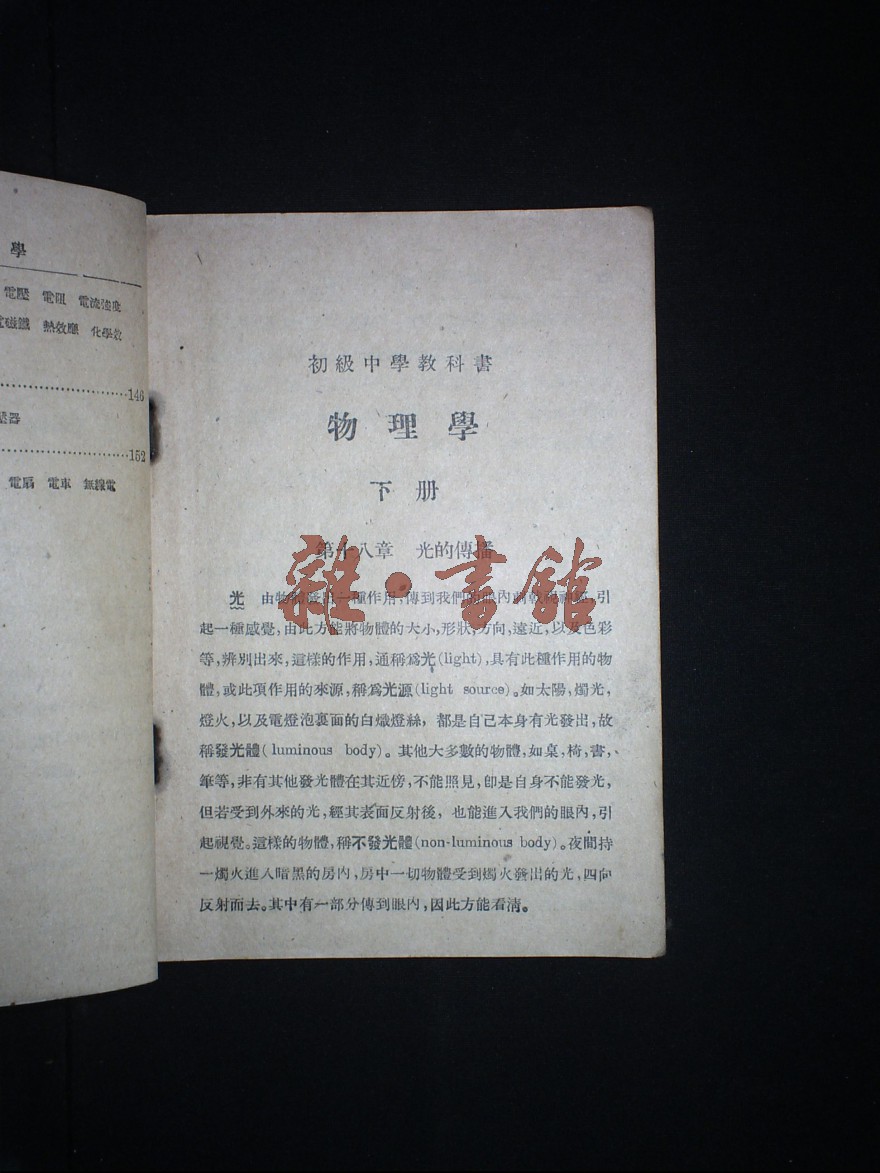 學
電壓 電阻 電流強度
電磁鐵 熱效應 化學效
146
壓器
152
電扇 電車 無線電
初級中學教科書
物理學
下册
第十八章 光的傳播
光 由物體發出一種作用,傳到我們的眼內刺戟視神經,引
起一種感覺,由此方能將物體的大小,形狀,方向,遠近,以及色彩
等,辨別出來,這樣的作用,通稱爲光(light),具有此種作用的物
體,或此項作用的來源,稱爲光源(light source)。如太陽,燭光,
燈火,以及電燈泡裏面的白熾燈絲,都是自己本身有光發出,故
稱發光體(luminous body)。其他大多數的物體,如桌,椅,書,
筆等,非有其他發光體在其近傍,不能照見,卽是自身不能發光,
但若受到外來的光,經其表面反射後,也能進入我們的眼內,引
起視覺。這樣的物體,稱不發光體(non-luminous body)。夜間持
一燭火進入暗黑的房內,房中一切物體受到燭火發出的光,四向
反射而去。其中有一部分傳到眼內,因此方能看清。
雜·書館